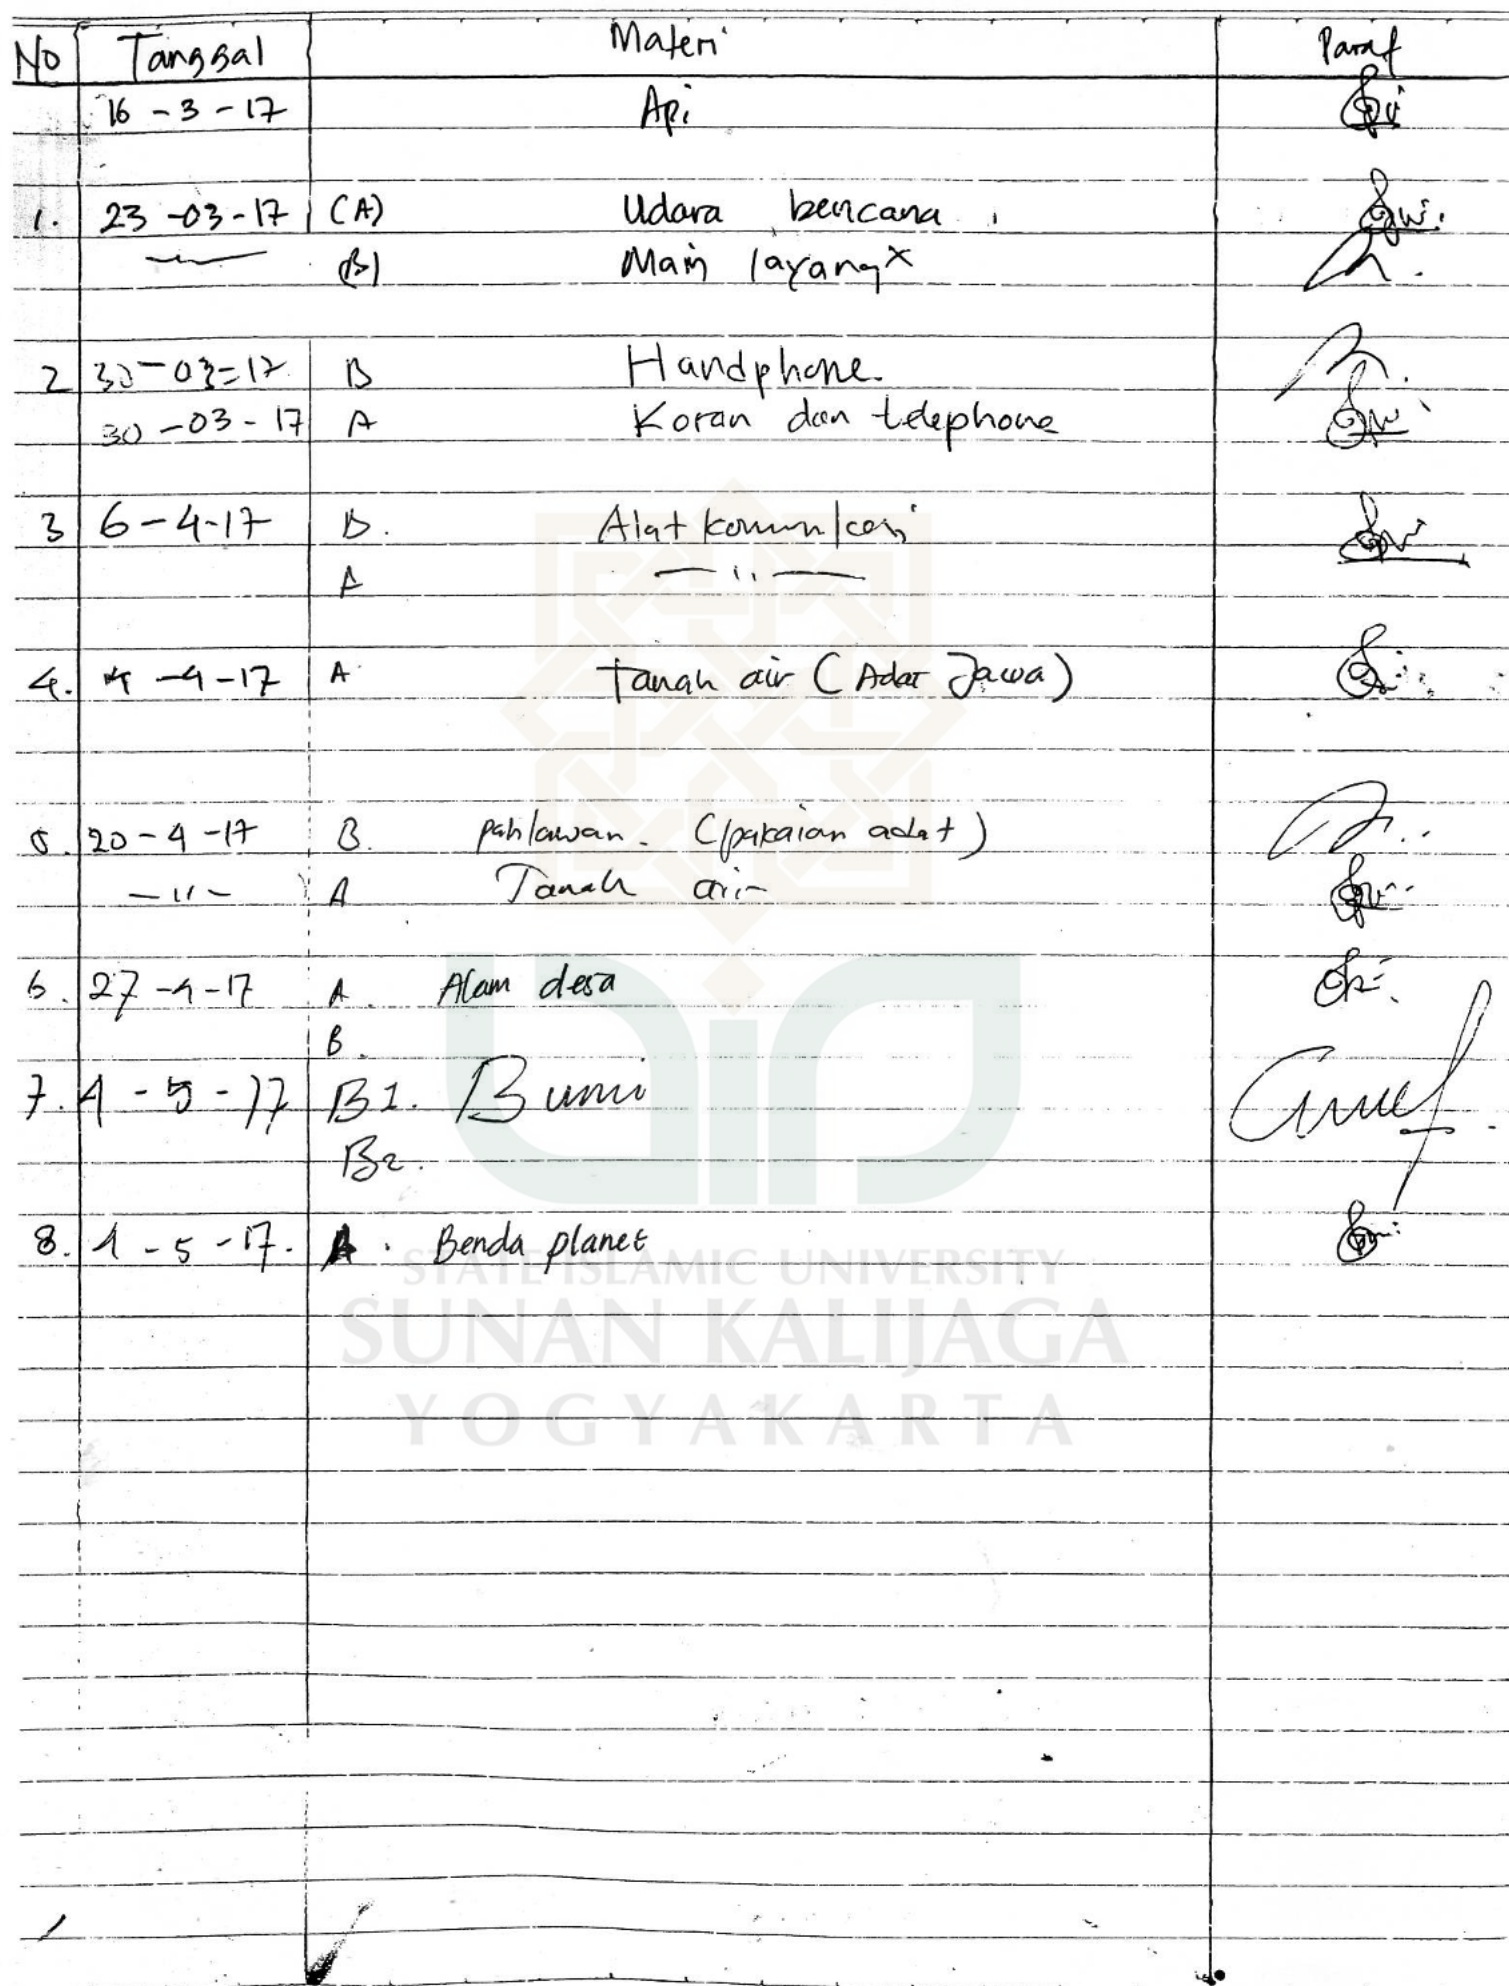 No Tanggal Materi Paraf
16 - 3 - 17 Api
1. 23 - 03 - 17 (A) Udara bencana
(B) Main layang x
2 30 - 03 = 17 B Handphone.
30 - 03 - 17 A Koran dan telephone
3 6 - 4 - 17 B. Alat komunikasi
A — ıı —
4. - 4 - 17 A Tanah air (Adat Jawa)
5. 20 - 4 - 17 B. pahlawan. (pakaian adat)
— ıı — A Tanah air
6. 27 - 4 - 17 A. Alam desa
B.
7. 4 - 5 - 17 B1. Bumi
B2.
8. 4 - 5 - 17. A. Benda planet
STATE ISLAMIC UNIVERSITY
SUNAN KALIJAGA
YOGYAKARTA